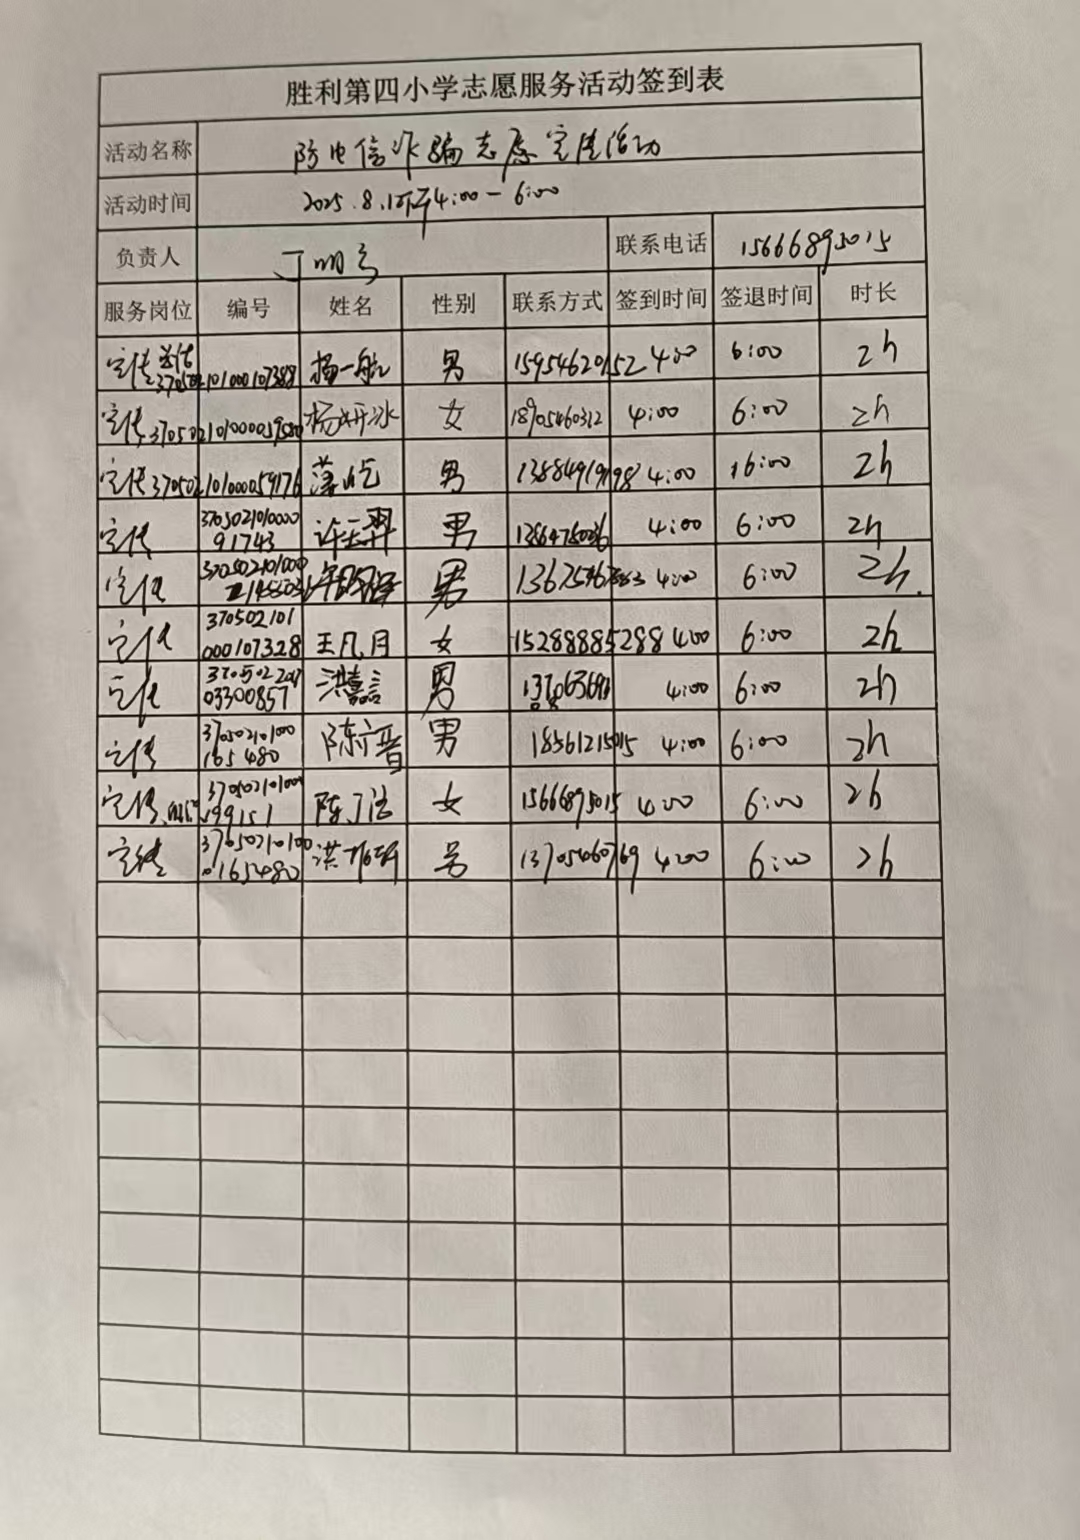 胜利第四小学志愿服务活动签到表
活动名称 防电信诈骗志愿宣传活动
活动时间 2025.8.1下午4:00-6:00
负责人 丁明 联系电话 15666895015
服务岗位 编号 姓名 性别 联系方式 签到时间 签退时间 时长
宣传 370502101000107388 杨一航 男 15954620152 4:00 6:00 2h
宣传 杨妍冰 女 18905460312 4:00 6:00 2h
宣传 370502101000059176 薄屹 男 13884919198 4:00 16:00 2h
宣传 370502101000091743 许天羿 男 4:00 6:00 2h
宣传 许 男 4:00 6:00 2h
宣传 370502101000107328 王凡月 女 15288885288 4:00 6:00 2h
宣传 洪嘉言 男 4:00 6:00 2h
宣传 370502101000165480 陈一晋 男 18561215015 4:00 6:00 2h
宣传 陈 女 15666895015 4:00 6:00 2h
宣传 洪 男 13705460769 4:00 6:00 2h